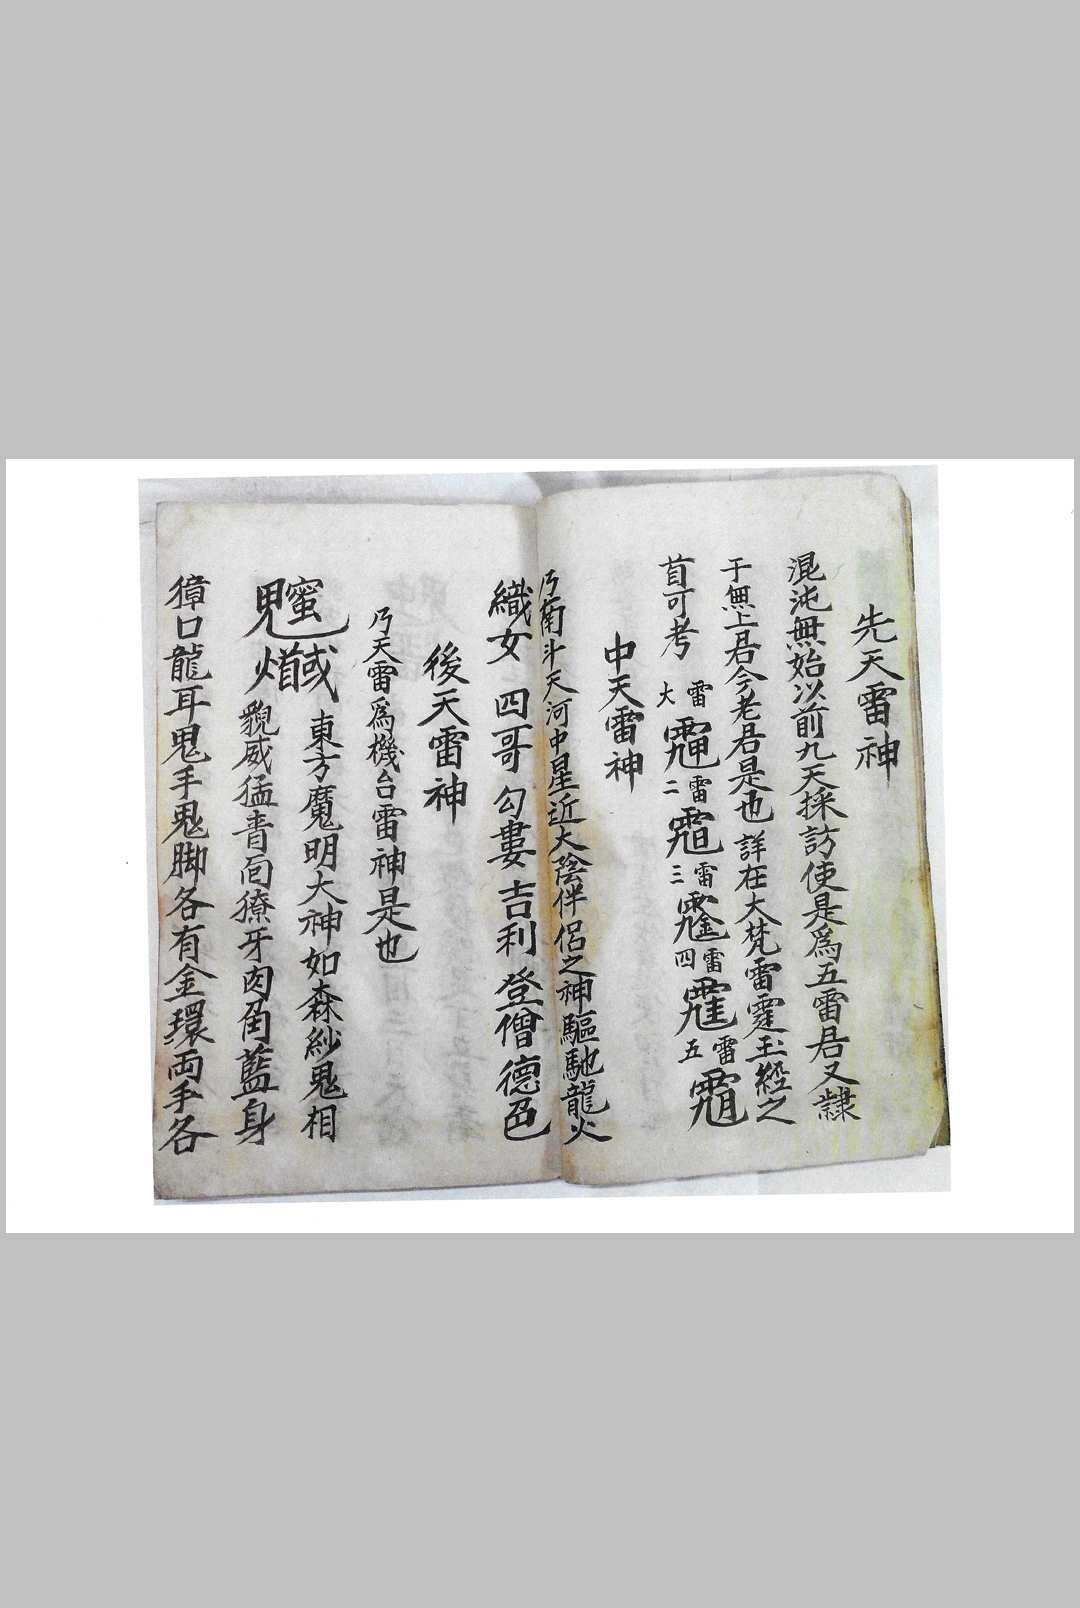 先天雷神
混沌無始以前九天採訪使是爲五雷君又隷
于無上君今老君是也詳在大梵雷霆玉經之
首可考
大雷 二雷 三雷 四雷 五雷
中天雷神
乃南斗天河中星近太陰伴侶之神驅馳龍火
織女 四哥 勾婁 吉利 登僧 德邑
後天雷神
乃天雷爲機台雷神是也
東方魔明大神如森紗鬼相
貌威猛青面獠牙肉角藍身
獐口龍耳鬼手鬼脚各有金環両手各